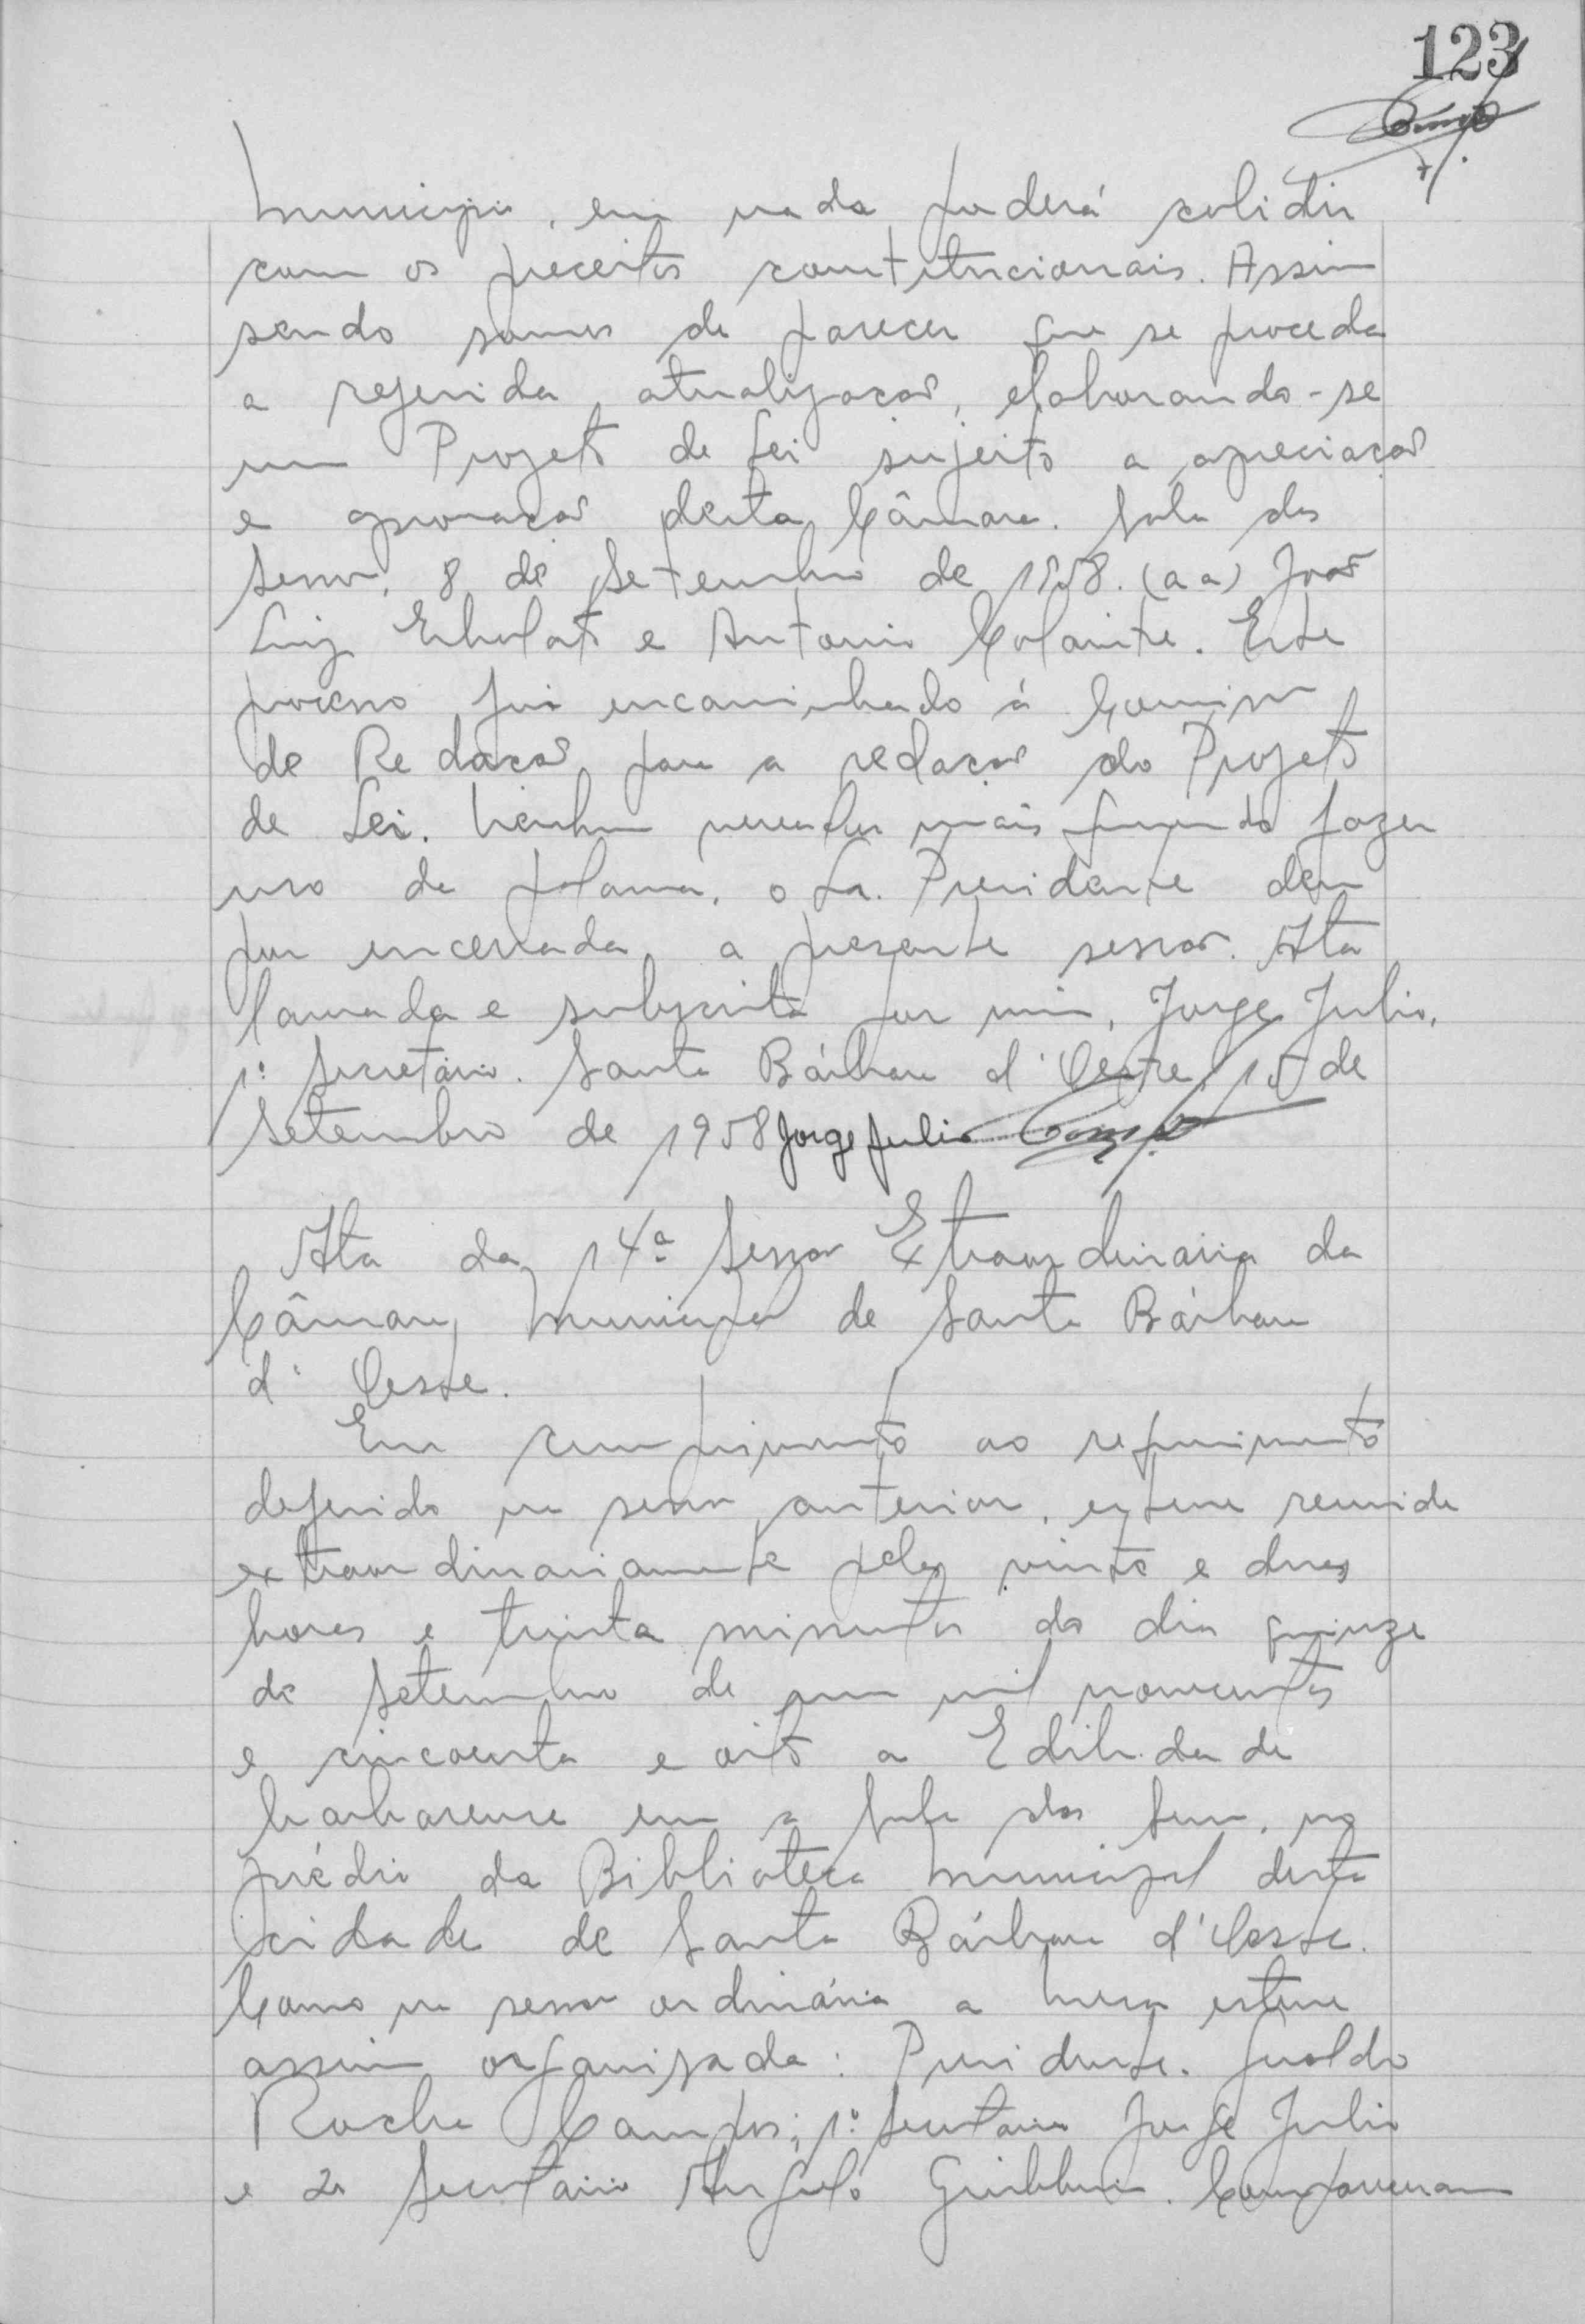 123
Município, em nada poderá colidir
com os preceitos constitucionais. Assim
sendo somos de parecer que se proceda
a referida atualização, elaborando-se
um Projeto de Lei sujeito a apreciação
e aprovação desta Câmara. Sala das
Sessões, 8 de Setembro de 1958. (aa) João
Luiz e Antonio. Este
processo foi encaminhado á Comissão
de Redação para a redação do Projeto
de Lei. Nenhum vereador mais querendo fazer
uso da palavra, o Sr. Presidente deu
por encerrada a presente sessão. Ata
lavrada e subscrita por mim, Jorge Julio,
1º Secretário. Santa Bárbara d'Oeste, 15 de
Setembro de 1958 Jorge Julio
Ata da 14ª Sessão Extraordinária da
Câmara Municipal de Santa Bárbara
d'Oeste.
Em cumprimento ao requerimento
deferido na sessão anterior, esteve reunida
extraordinariamente pelas vinte e duas
horas e trinta minutos do dia quinze
de Setembro de um mil novecentos
e cincoenta e oito a Edilidade
barbarense em a Sala das Sessões, no
prédio da Biblioteca Municipal desta
cidade de Santa Bárbara d'Oeste.
Como na sessão ordinária a mesa esteve
assim organizada: Presidente. Geraldo
Rocha Campos; 1º Secretário Jorge Julio
e 2º Secretário Angelo. Compareceram